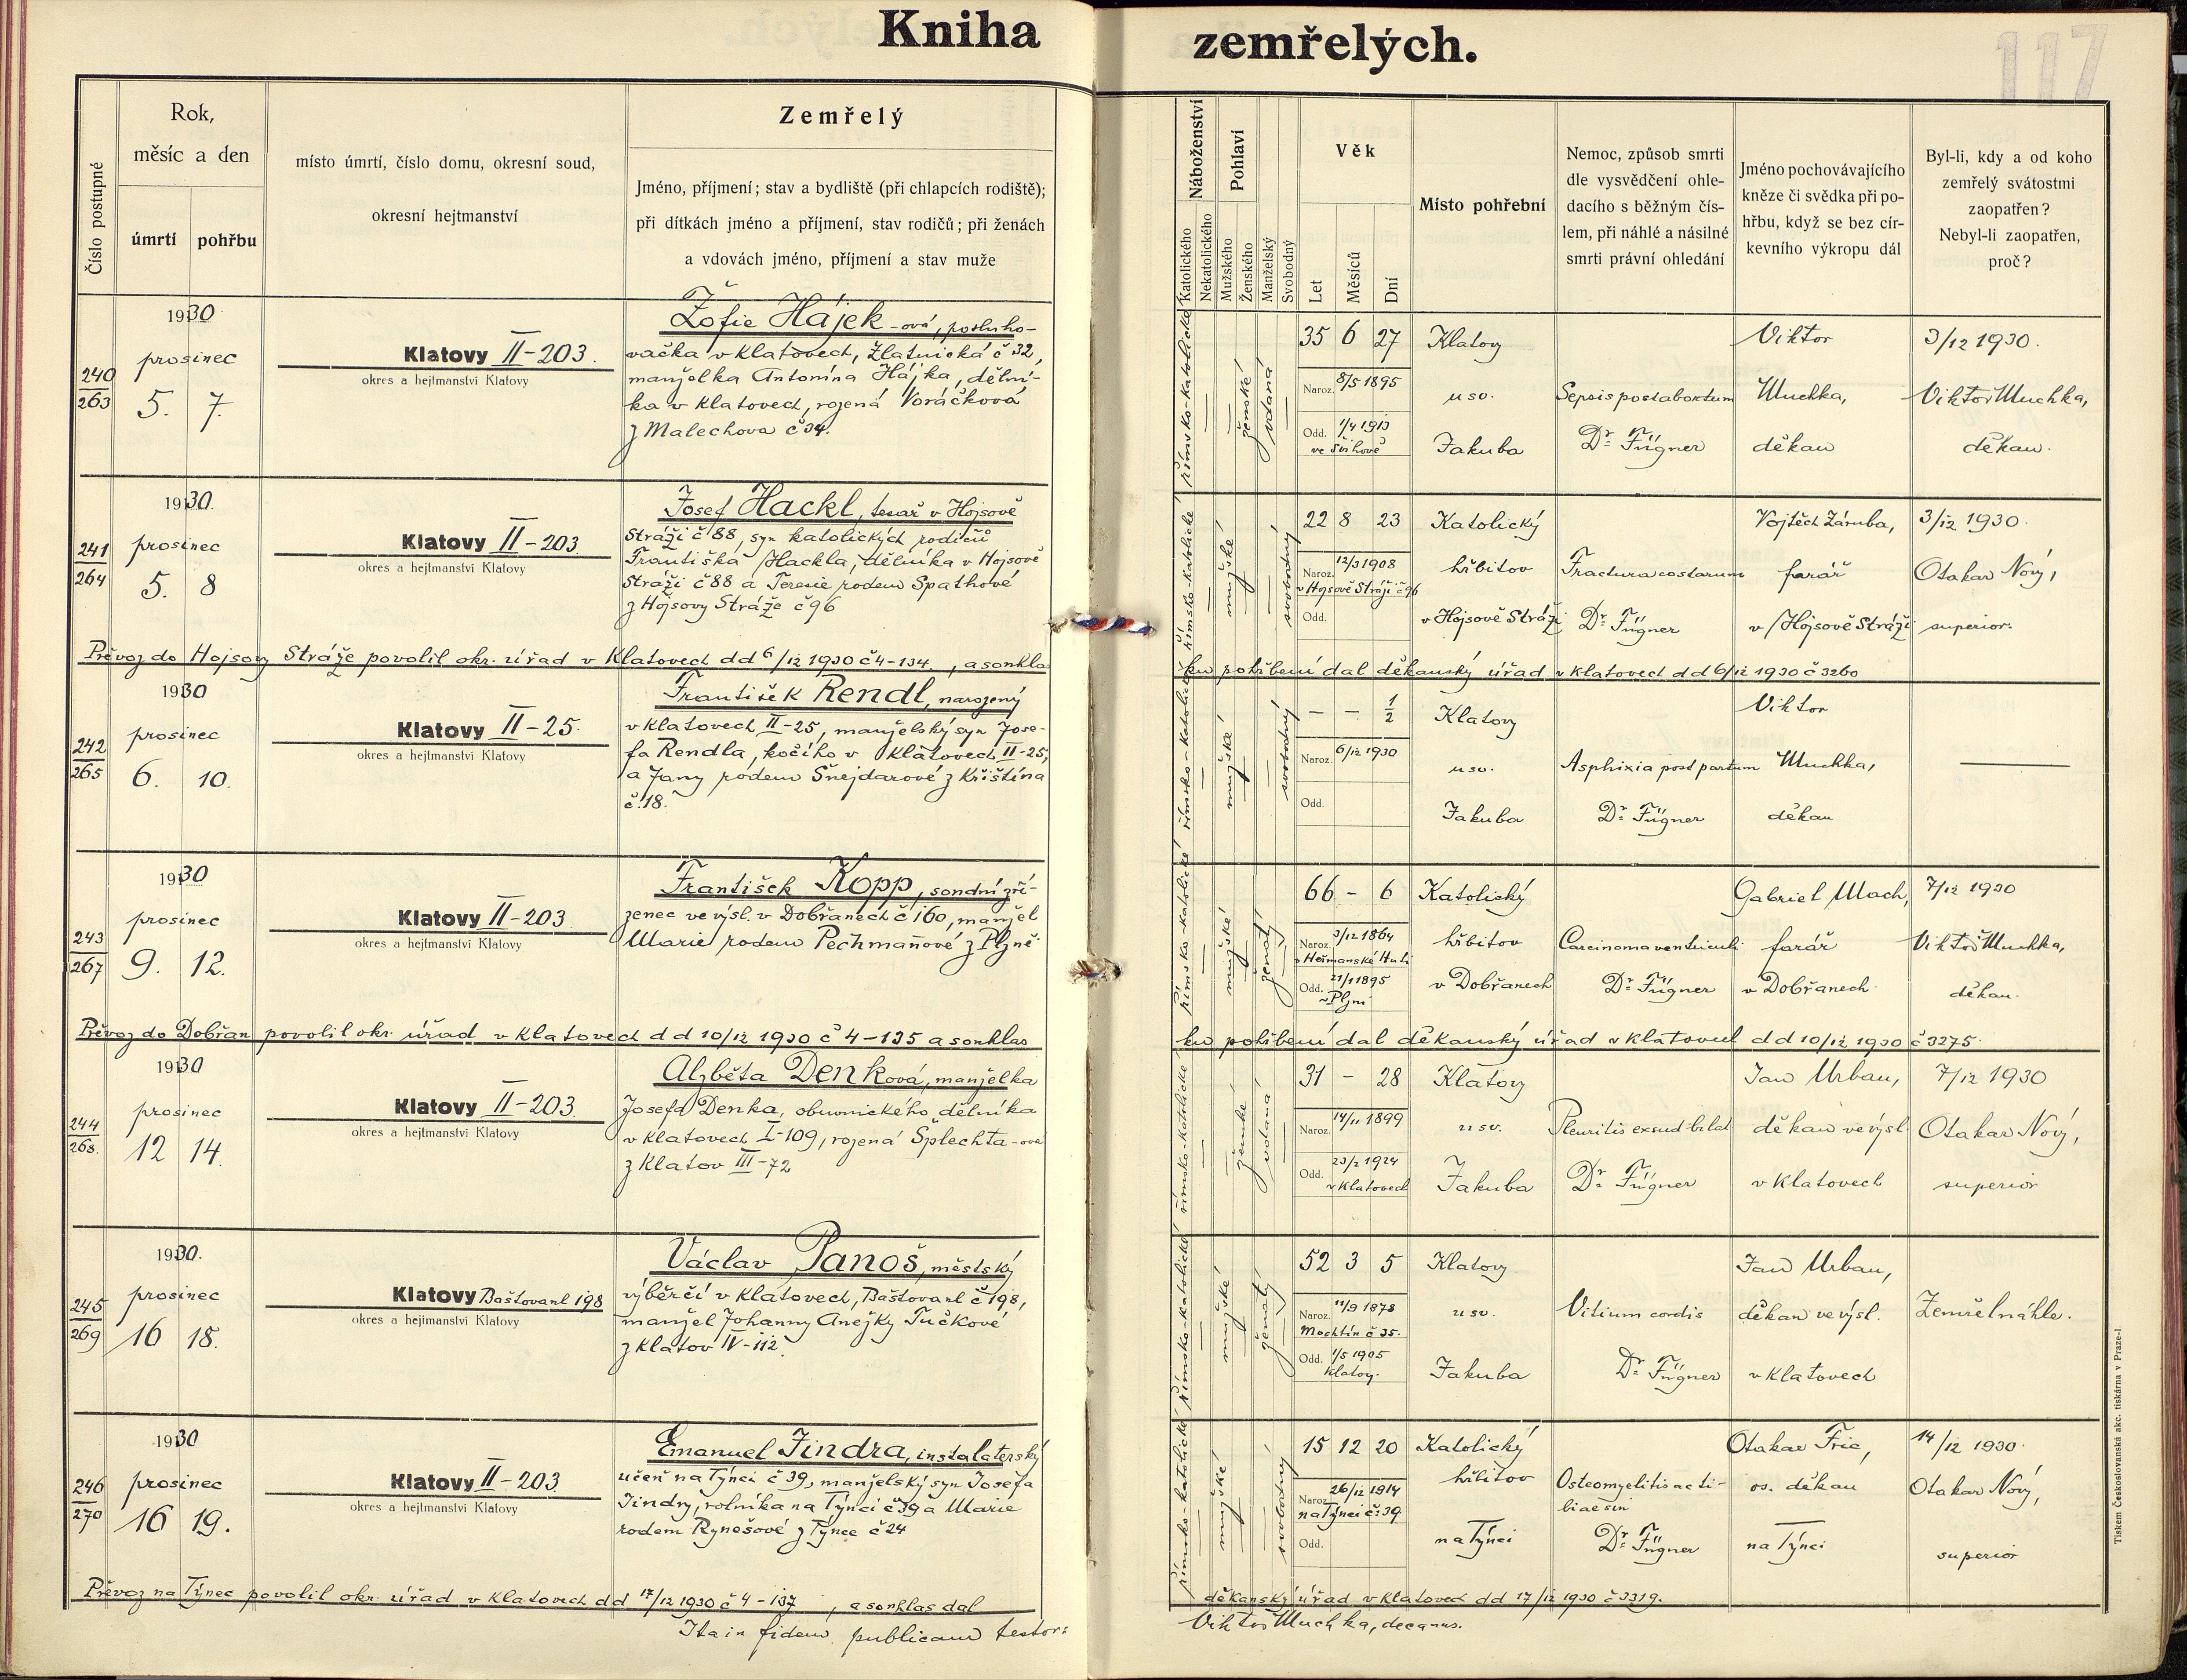 Kniha zemřelých.
117
Číslo postupné
Rok,
měsíc a den
úmrtí
pohřbu
místo úmrtí, číslo domu, okresní soud,
okresní hejtmanství
Zemřelý
Jméno, příjmení; stav a bydliště (při chlapcích rodiště);
při dítkách jméno a příjmení, stav rodičů; při ženách
a vdovách jméno, příjmení a stav muže
Náboženství
Katolického
Nekatolického
Pohlaví
Mužského
Ženského
Manželský
Svobodný
Věk
Let
Měsíců
Dní
Místo pohřební
Nemoc, způsob smrti
dle vysvědčení ohle-
dacího s běžným čís-
lem, při náhlé a násilné
smrti právní ohledání
Jméno pochovávajícího
kněze či svědka při po-
hřbu, když se bez cír-
kevního výkropu dál
Byl-li, kdy a od koho
zemřelý svátostmi
zaopatřen?
Nebyl-li zaopatřen,
proč?
240
263
1930
prosinec
5. 7.
Klatovy II-203.
okres a hejtmanství Klatovy
Žofie Hájek-ová, posluho-
vačka v Klatovech, Zlatnická č 32,
manželka Antonína Hájka, dělní-
ka v Klatovech, rozená Voráčková
z Malechova č 34.
římsko-katolické
ženské
vdaná
35 6 27
Naroz. 8/5 1895
Odd. 1/4 1913
ve Švihově
Klatovy
u sv.
Jakuba
Sepsis post abortum
Dr. Fügner
Viktor
Muchka,
děkan
3/12 1930.
Viktor Muchka,
děkan.
241
264
1930.
prosinec
5. 8
Klatovy II-203
okres a hejtmanství Klatovy
Josef Hackl, tesař v Hojsově
Stráži č 88, syn katolických rodičů
Františka Hackla, dělníka v Hojsově
Stráži č 88 a Terezie rodem Spathové
z Hojsovy Stráže č 96
římsko-katolické
mužské
svobodný
22 8 23
Naroz. 12/3 1908
v Hojsově Stráži č 96
Odd.
Katolický
hřbitov
v Hojsově Stráži
Fractura costarum
Dr. Fügner
Vojtěch Záruba,
farář
v Hojsově Stráži
3/12 1930.
Otakar Nový,
superior.
Převoz do Hojsovy Stráže povolil okr. úřad v Klatovech dd 6/12 1930 č 4-134., a souhlas
ku pohřbení dal děkanský úřad v Klatovech dd 6/12 1930 č 3260
242
265
1930
prosinec
6. 10.
Klatovy II-25.
okres a hejtmanství Klatovy
František Rendl, narozený
v Klatovech II-25, manželský syn Jose-
fa Rendla, kočího v Klatovech II-25,
a Jany rodem Šnejdarové z Křištína
č.18.
římsko-katolické
mužské
svobodný
– – 1/2
Naroz. 6/12 1930
Odd.
Klatovy
u sv.
Jakuba
Asphixia post partum
Dr. Fügner
Viktor
Muchka,
děkan
243
267
1930
prosinec
9. 12.
Klatovy II-203
okres a hejtmanství Klatovy
František Kopp, soudní zří-
zenec ve výsl. v Dobřanech č 160, manžel
Marie rodem Pechmanové z Plzně.
římsko-katolické
mužské
ženatý
66 – 6
Naroz. 3/12 1864
v Heřmanské Huti
Odd. 21/1 1895
v Plzni
Katolický
hřbitov
v Dobřanech
Carcinoma ventriculi
Dr. Fügner
Gabriel Mach,
farář
v Dobřanech
7/12 1930
Viktor Muchka,
děkan.
Převoz do Dobřan povolil okr. úřad v Klatovech dd 10/12 1930 č 4-135 a souhlas
ku pohřbení dal děkanský úřad v Klatovech dd 10/12 1930 č 3275.
244
268.
1930
prosinec
12 14.
Klatovy II-203
okres a hejtmanství Klatovy
Alžběta Denková, manželka
Josefa Denka, obuvnického dělníka
v Klatovech I-109, rozená Šplechta-ová
z Klatov III-72
římsko-katolické
ženské
vdaná
31 – 28
Naroz. 14/11 1899
Odd. 23/2 1924
v Klatovech
Klatovy
u sv.
Jakuba
Pleuritis exsud bilat
Dr. Fügner
Jan Urban,
děkan ve výsl
v Klatovech
7/12 1930
Otakar Nový,
superior
245
269
1930.
prosinec
16 18.
Klatovy Baštovanl 198
okres a hejtmanství Klatovy
Václav Panoš, městský
výběrčí v Klatovech, Baštovanl č 198,
manžel Johanny Anežky Tučkové
z Klatov IV-112.
římsko-katolické
mužské
ženatý
52 3 5
Naroz. 11/9 1878
Mochtín č 35.
Odd. 1/5 1905
Klatovy.
Klatovy
u sv.
Jakuba
Vitium cordis
Dr. Fügner
Jan Urban,
děkan ve výsl.
v Klatovech
Zemřel náhle.
246
270
1930
prosinec
16 19.
Klatovy II-203
okres a hejtmanství Klatovy
Emanuel Jindra, instalaterský
učeň na Týnci č 39, manželský syn Josefa
Jindry, rolníka na Týnci č 39 a Marie
rodem Rynešové z Týnce č 24
římsko-katolické
mužské
svobodný
15 12 20
Naroz. 26/12 1914
na Týnci č. 39
Odd.
Katolický
hřbitov
na Týnci
Osteomyelitis ac ti-
biae sin
Dr. Fügner
Otakar Fric,
os. děkan
na Týnci
14/12 1930.
Otakar Nový,
superior
Převoz na Týnec povolil okr. úřad v Klatovech dd 17/12 1930 č 4-137, a souhlas dal
děkanský úřad v Klatovech dd 17/12 1930 č 3319.
Ita in fidem publicam testor:
Viktor Muchka, decanus.
Tiskem Československá akc. tiskárna v Praze-I.